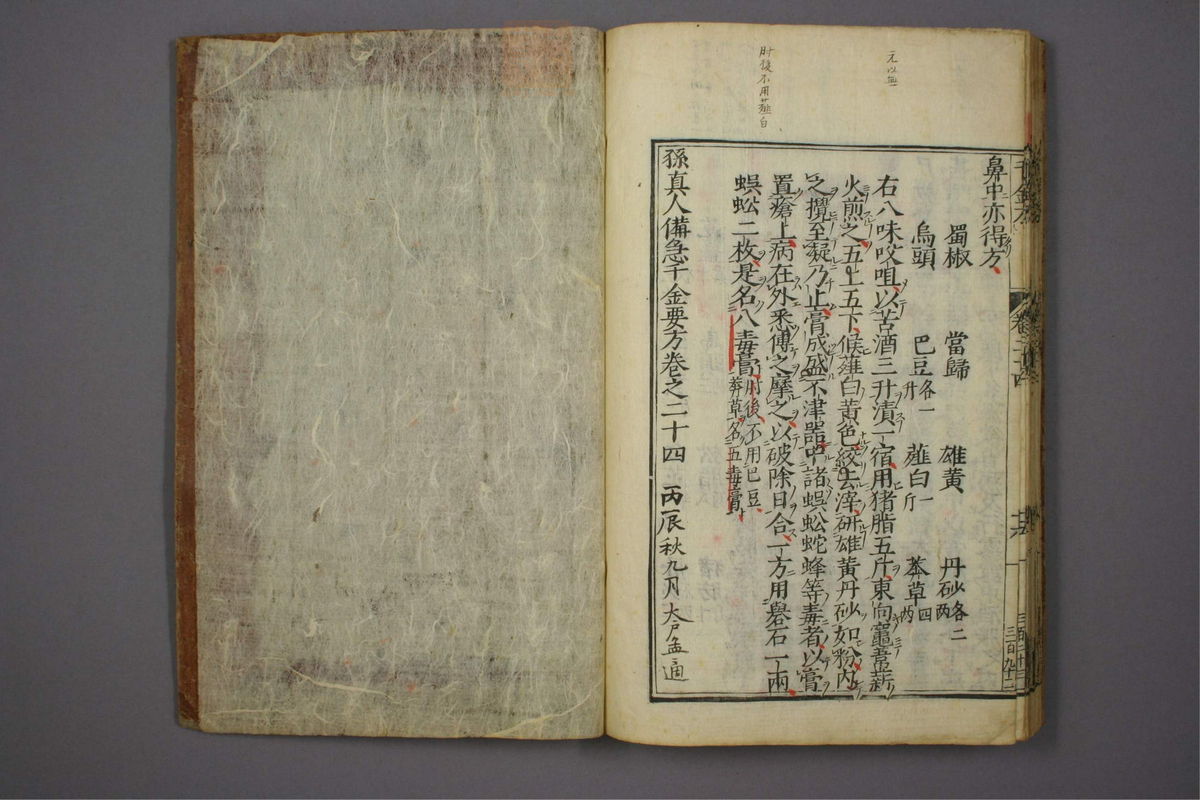 元以無
肘後不用薤白
鼻中亦得方
蜀椒 當歸 雄黃 丹砂各二兩
烏頭 巴豆各一升 薤白一斤 莽草四兩
右八味㕮咀以苦酒三升漬一宿用猪脂五斤東向竈葦薪
火煎之五上五下候薤白黃色絞去滓研雄黃丹砂如粉内
之攪至凝乃止膏成盛不津器中諸蜈蚣蛇蜂等毒者以膏
置瘡上病在外悉傅之摩之以破除日合一方用礜石一兩
蜈蚣二枚是名八毒膏肘後不用巴豆莽草名五毒膏
孫真人備急千金要方卷之二十四 丙辰秋九月大户孟通